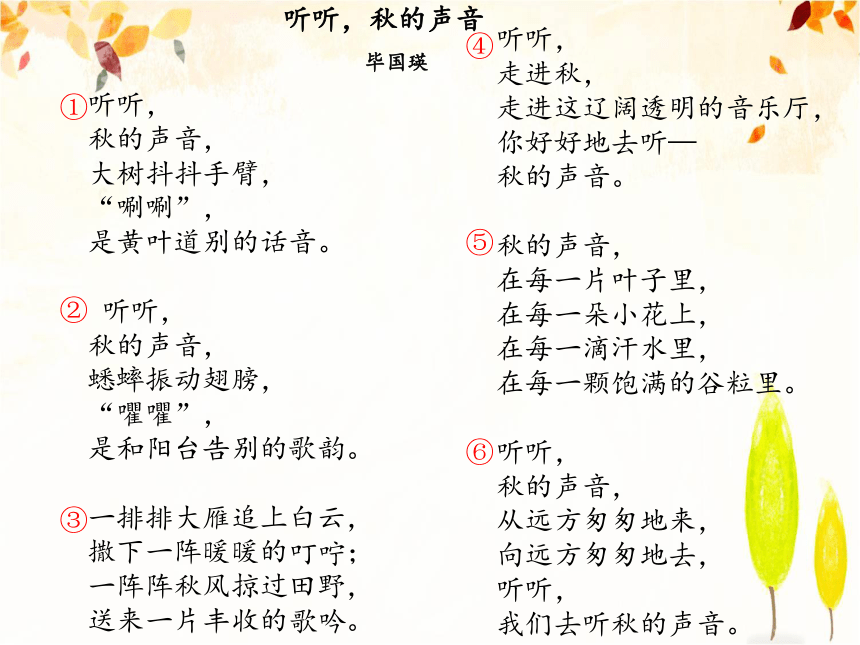 听听，秋的声音
毕国瑛
①听听，
秋的声音，
大树抖抖手臂，
“唰唰”，
是黄叶道别的话音。
② 听听，
秋的声音，
蟋蟀振动翅膀，
“㘗㘗”，
是和阳台告别的歌韵。
③一排排大雁追上白云，
撒下一阵暖暖的叮咛；
一阵阵秋风掠过田野，
送来一片丰收的歌吟。
④听听，
走进秋，
走进这辽阔透明的音乐厅，
你好好地去听—
秋的声音。
⑤秋的声音，
在每一片叶子里，
在每一朵小花上，
在每一滴汗水里，
在每一颗饱满的谷粒里。
⑥听听，
秋的声音，
从远方匆匆地来，
向远方匆匆地去，
听听，
我们去听秋的声音。